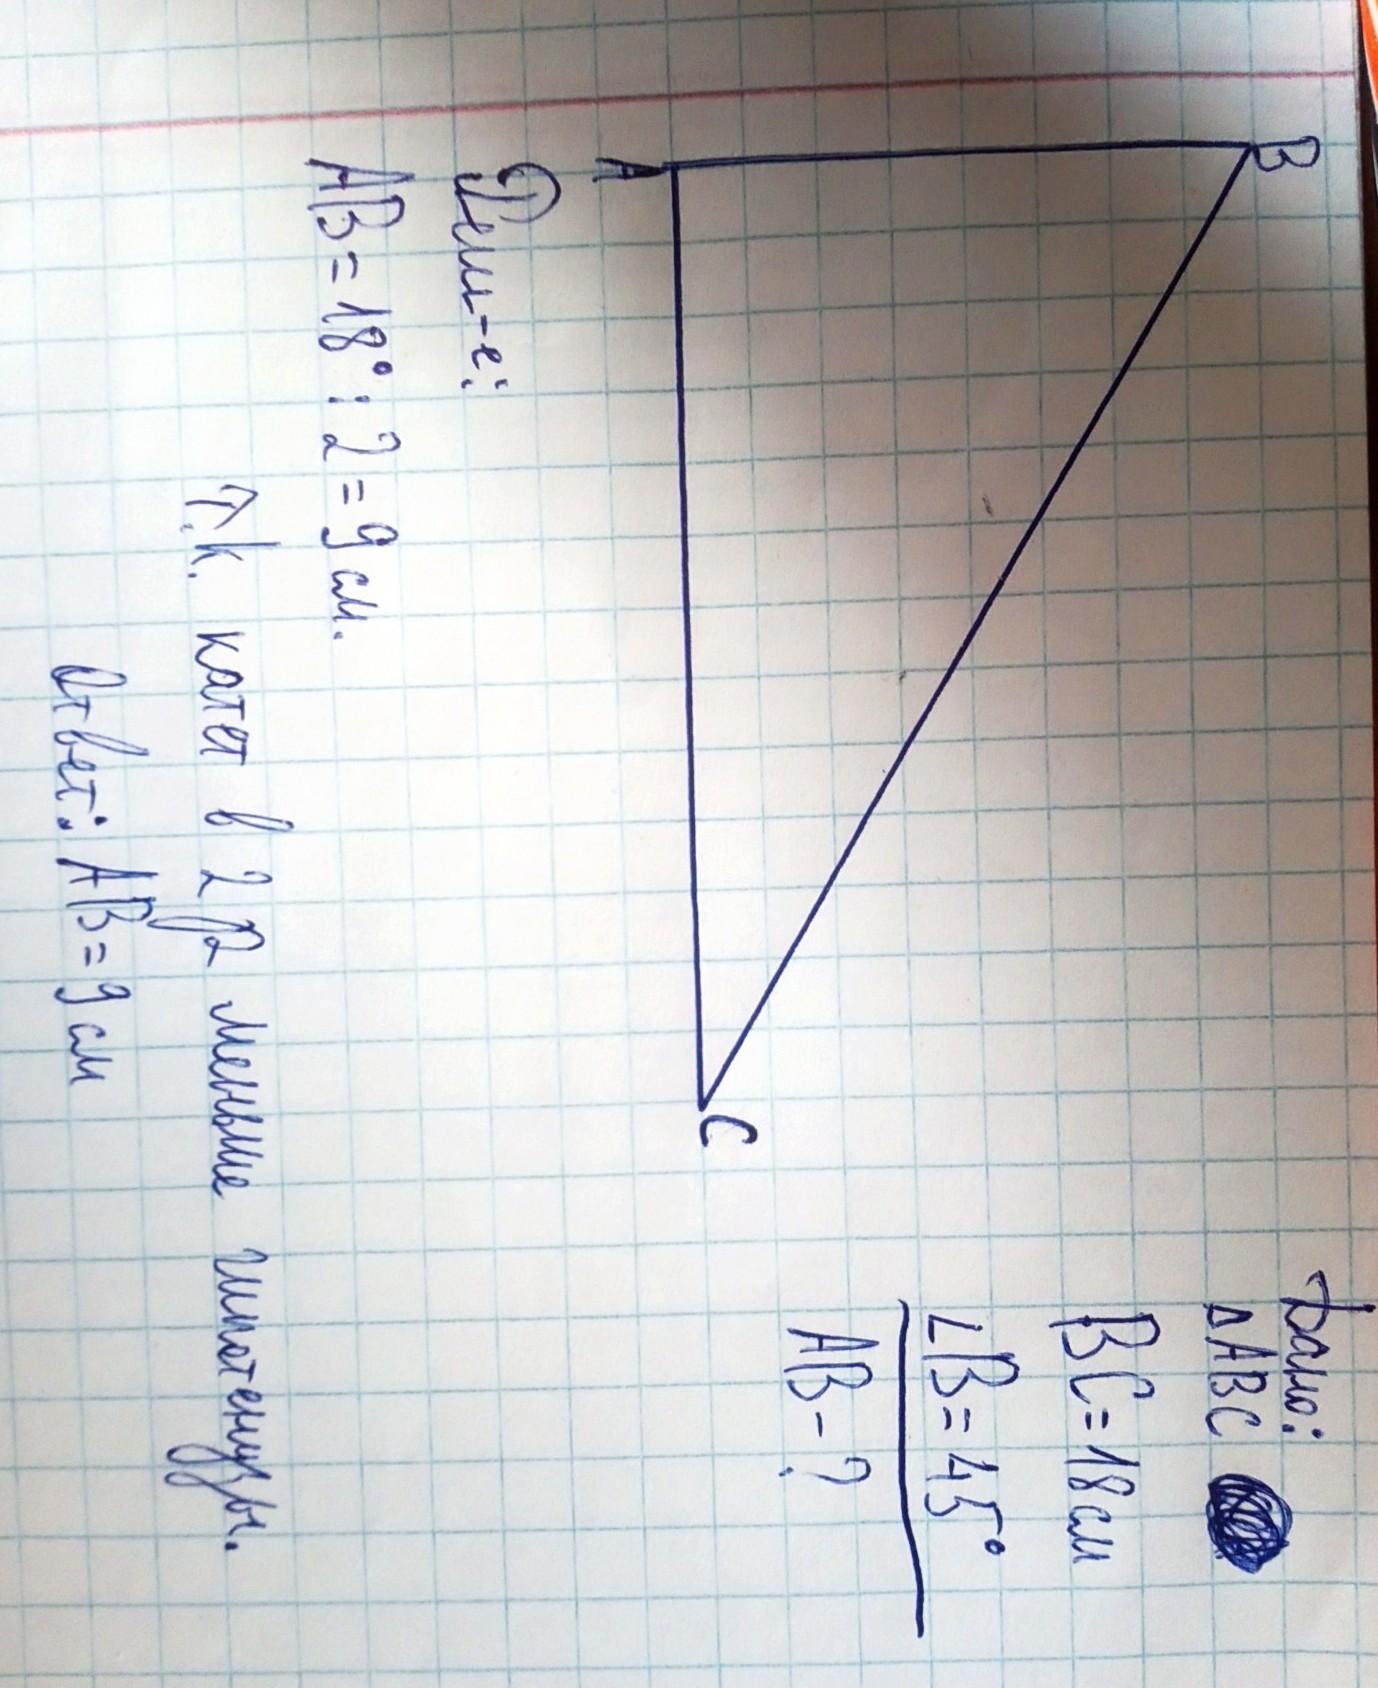 Дано:
△ABC
BC=18см
∠B=45°
AB-?
B
A
C
Реш-е:
AB=18°:2=9см.
т.к. катет в 2 р меньше гипотенузы.
Ответ: AB=9см